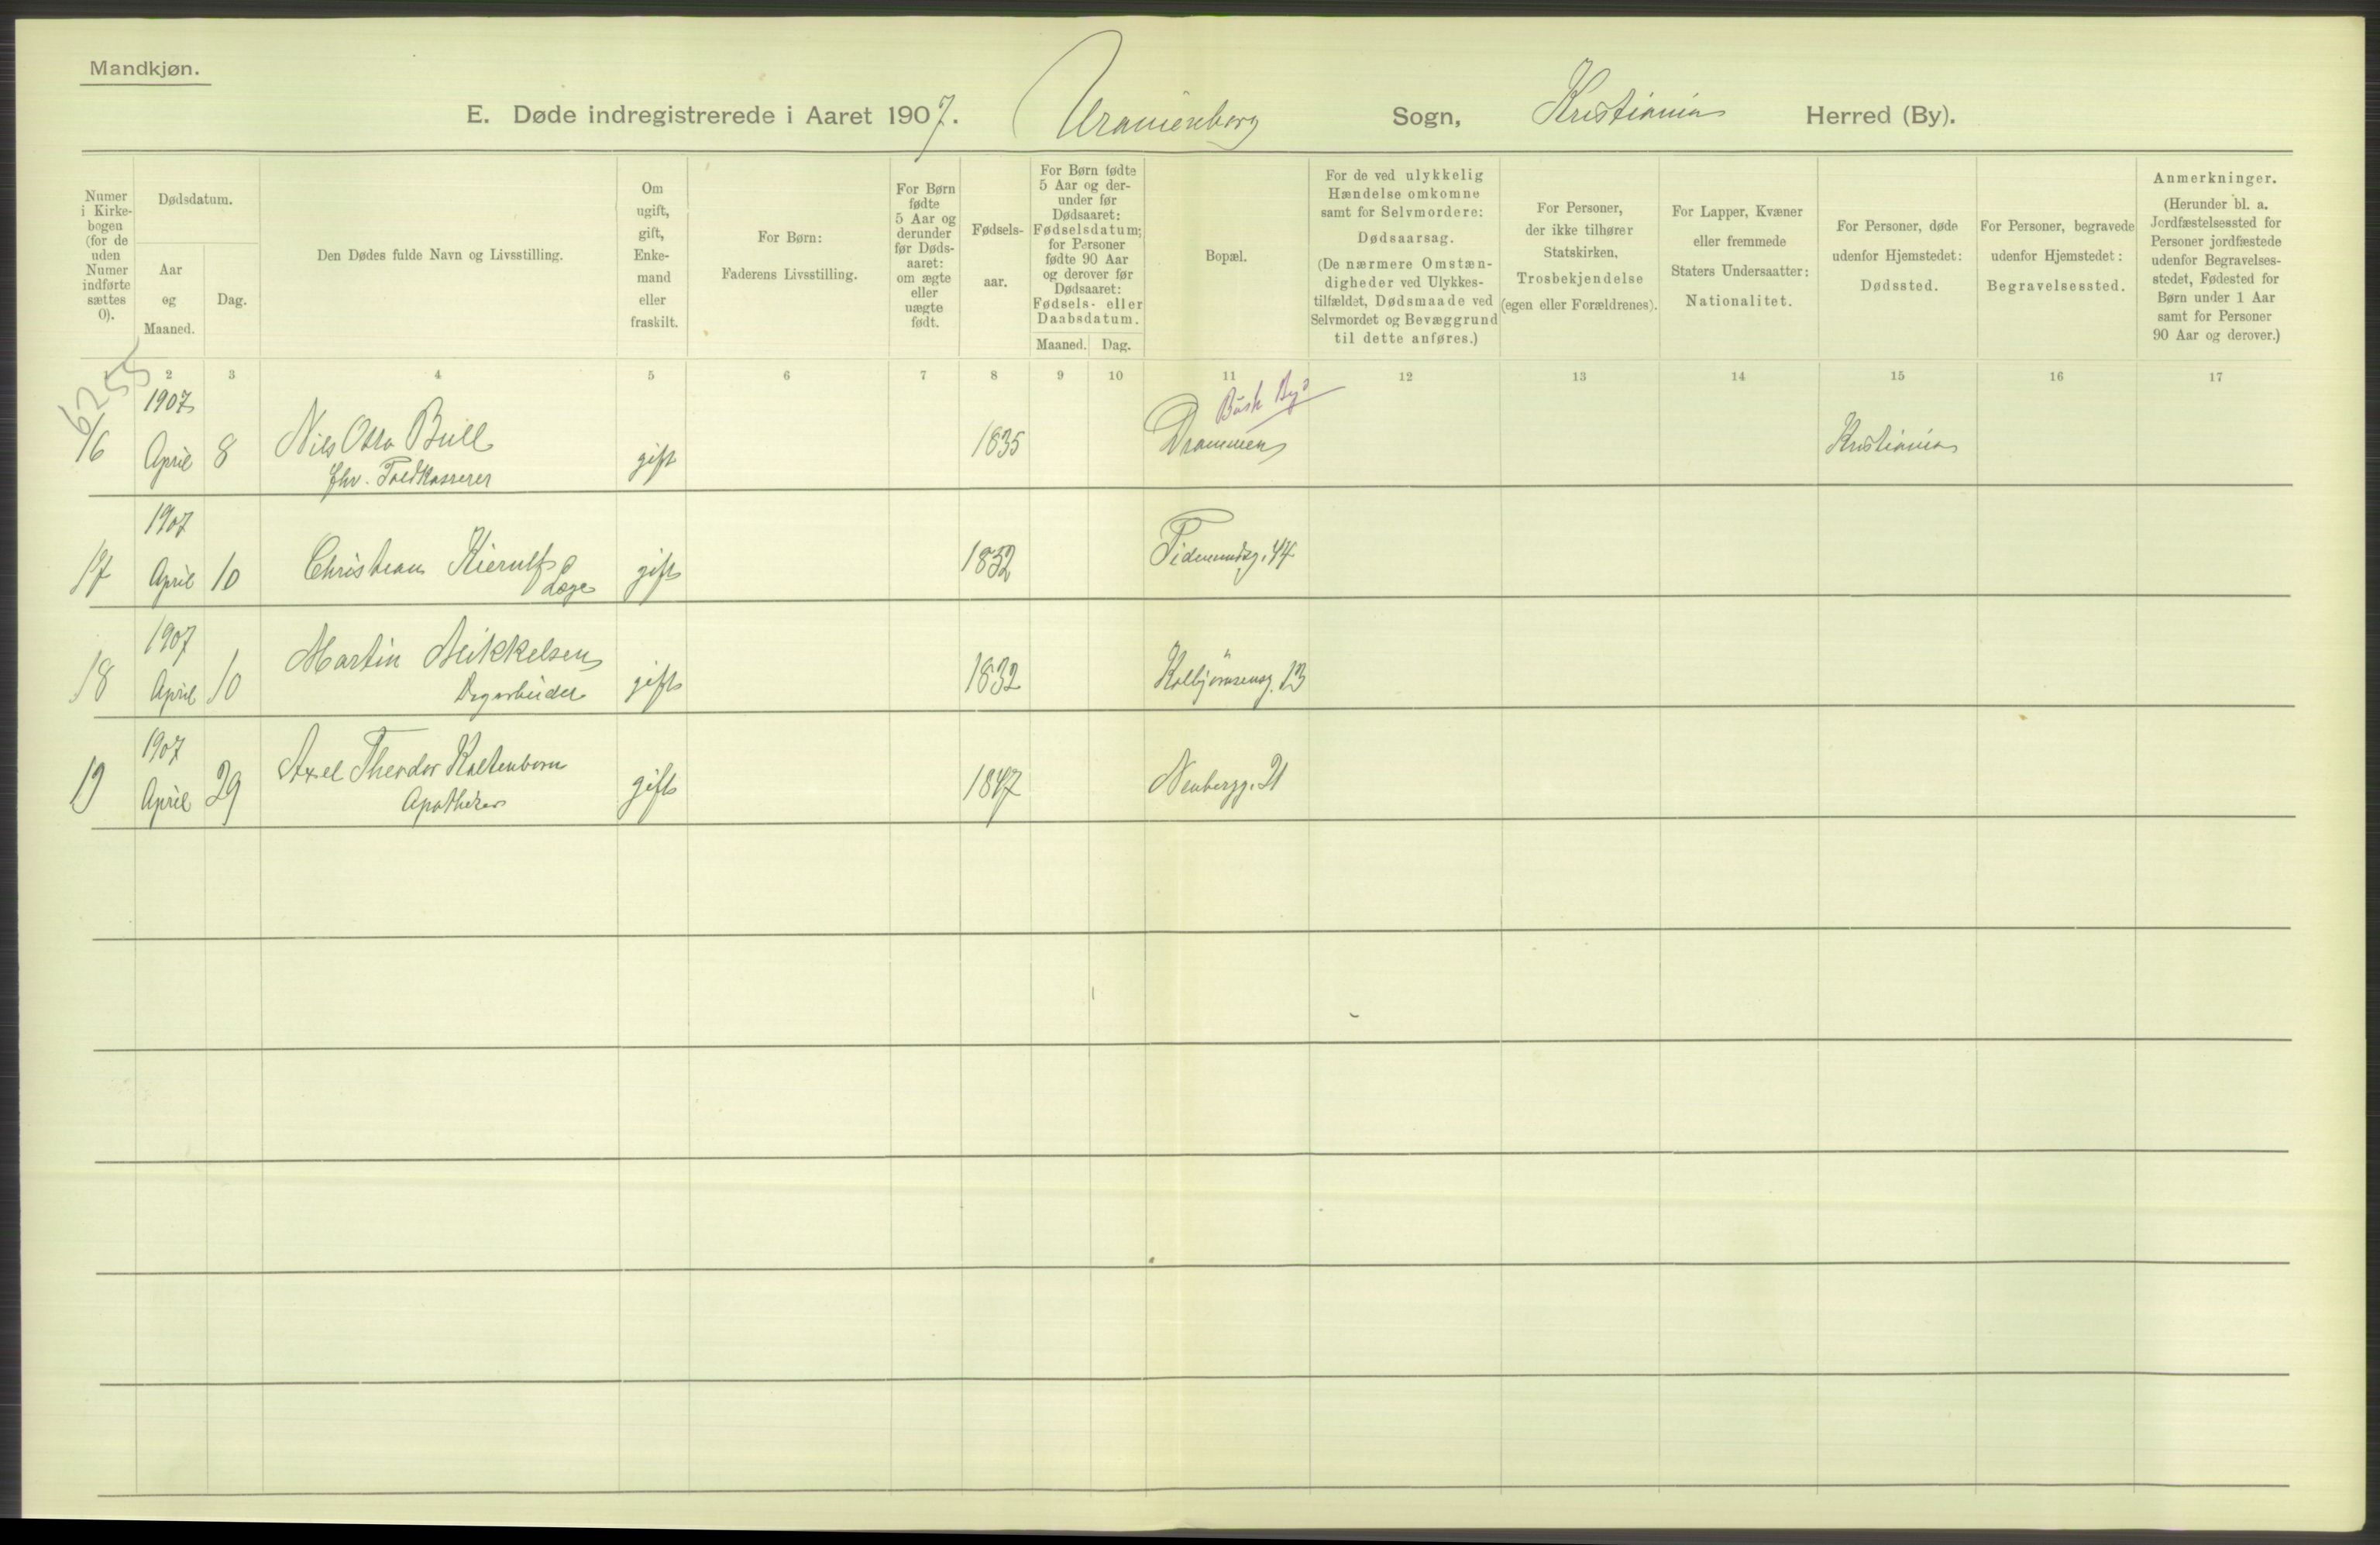 Mandkjøn.
E. Døde indregistrerede i Aaret 1907. Uranienborg Sogn, Kristiania Herred (By).
Numer i Kirkebogen (for de uden Numer indførte sættes 0).
Dødsdatum.
Aar og Maaned.
Dag.
Den Dødes fulde Navn og Livsstilling.
Om ugift, gift, Enkemand eller fraskilt.
For Børn: Faderens Livsstilling.
For Børn fødte 5 Aar og derunder før Dødsaaret: om ægte eller uægte født.
Fødselsaar.
For Børn fødte 5 Aar og derunder før Dødsaaret: Fødselsdatum; for Personer fødte 90 Aar og derover før Dødsaaret: Fødsels- eller Daabsdatum.
Maaned. Dag.
Bopæl.
For de ved ulykkelig Hændelse omkomne samt for Selvmordere: Dødsaarsag. (De nærmere Omstændigheder ved Ulykkestilfældet, Dødsmaade ved Selvmordet og Bevæggrund til dette anføres.)
For Personer, der ikke tilhører Statskirken, Trosbekjendelse (egen eller Forældrenes).
For Lapper, Kvæner eller fremmede Staters Undersaatter: Nationalitet.
For Personer, døde udenfor Hjemstedet: Dødssted.
For Personer, begravede udenfor Hjemstedet: Begravelsessted.
Anmerkninger. (Herunder bl. a. Jordfæstelsessted for Personer jordfæstede udenfor Begravelsesstedet, Fødested for Børn under 1 Aar samt for Personer 90 Aar og derover.)
2 3 4 5 6 7 8 9 10 11 12 13 14 15 16 17
6255
1907
16 April 8 Nils Otto Bull gift 1835 Drammen Kristiania
fhv. Toldkasserer
1907
17 April 10 Christian Kierulf gift 1832 Tidemandsg. 44
Læge
1907
18 April 10 Martin Mikkelsen gift 1832 Kolbjørnsensg. 13
Dagarbeider
1907
19 April 29 Axel Theodor Kaltenborn gift 1847 Neubergg. 21
Apotheker